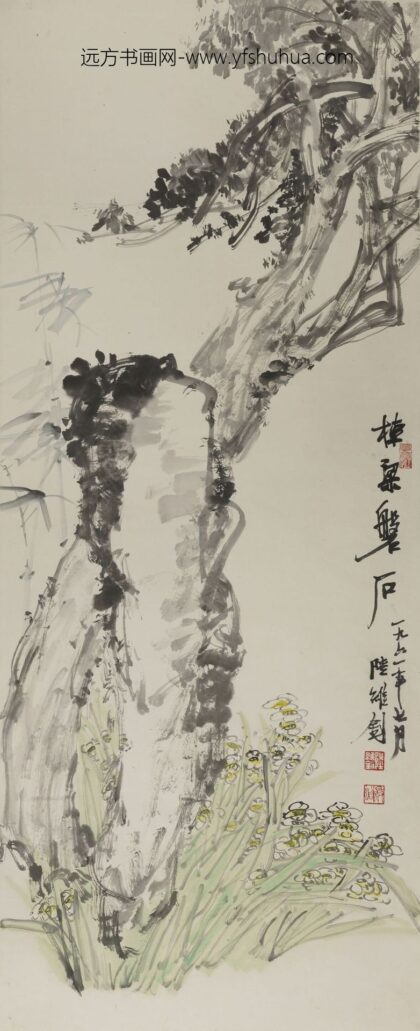 远方书画网-www.yfshuhua.com
栋梁盤石
一九六一年七月
陸雄劍